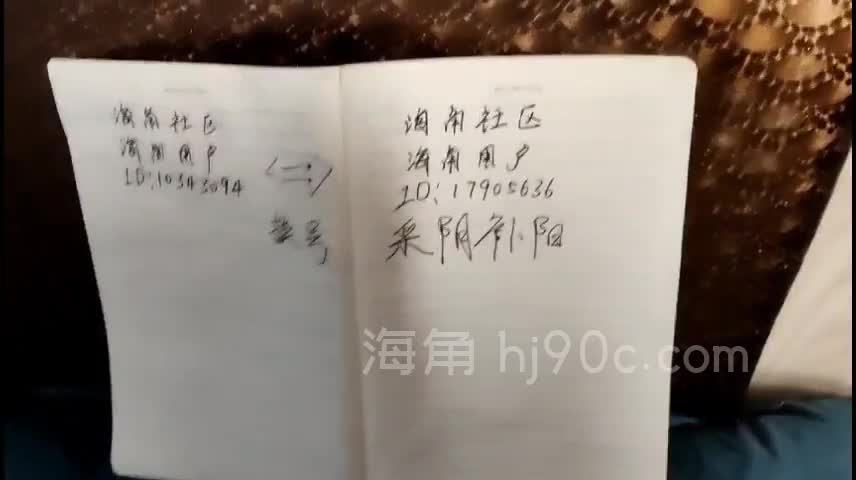 海角社区
海角用户
ID:10343094
海角社区
海角用户
ID:17905636
采阴补阳
海角 hj90c.com